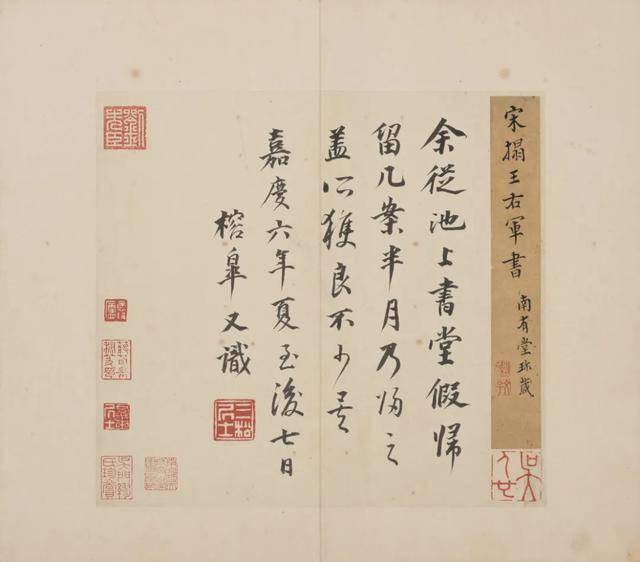 宋搨王右軍書
南有堂珍藏
余從池上書堂假歸
留几案半月乃歸之
蓋所獲良不少矣
嘉慶六年夏至後七日
榕皋又識
三松居士